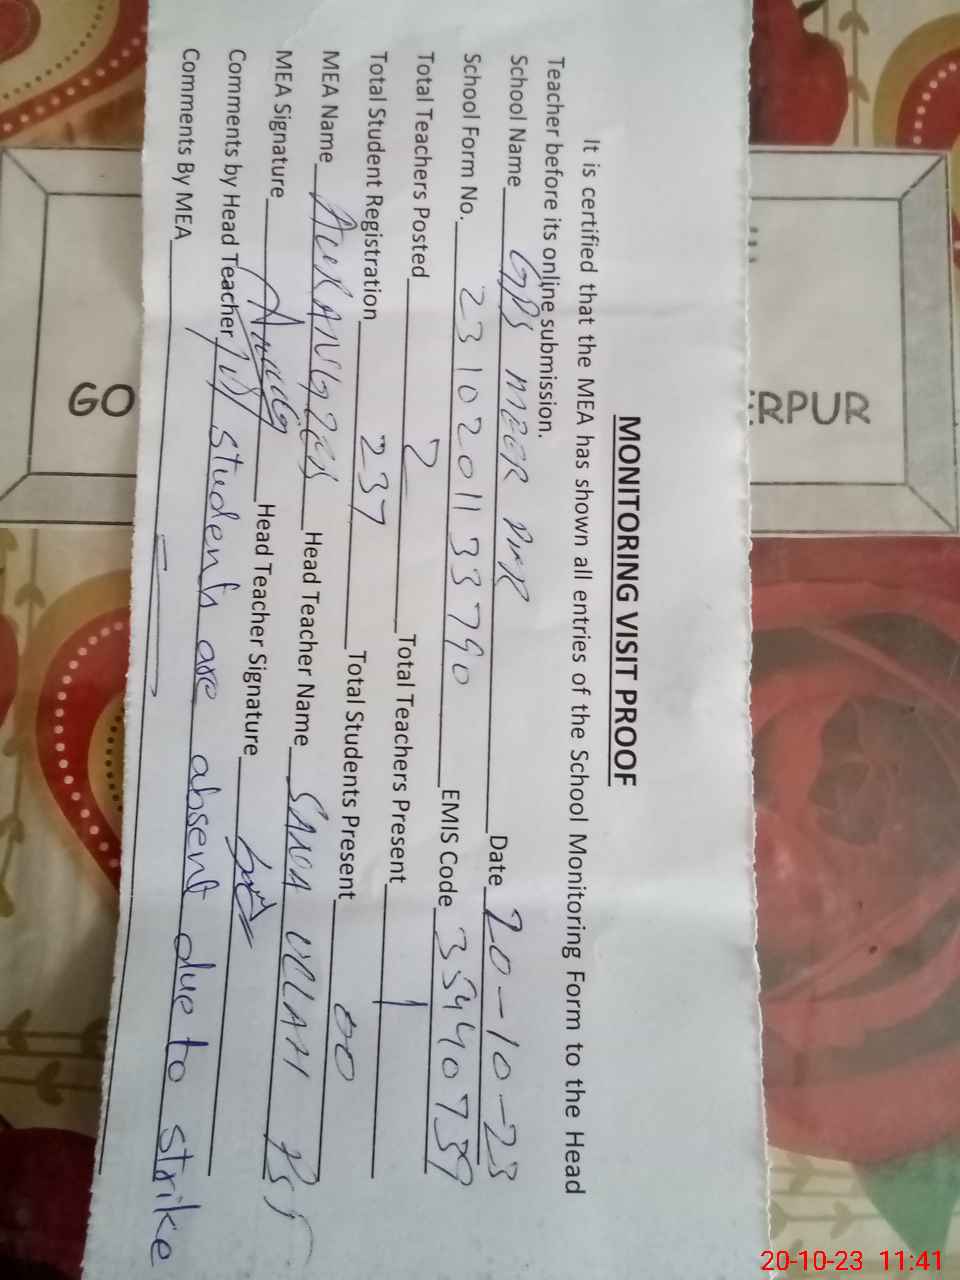 MONITORING VISIT PROOF
It is certified that the MEA has shown all entries of the School Monitoring Form to the Head
Teacher before its online submission.
School Name GPS Date 20-10-23
School Form No. 2310201133790 EMIS Code 35440739
Total Teachers Posted 2 Total Teachers Present 1
Total Student Registration 237 Total Students Present 00
MEA Name AURANGZEB Head Teacher Name SANA ULLAH PST
MEA Signature Head Teacher Signature
Comments by Head Teacher students are absent due to strike
Comments By MEA
GO
ERPUR
20-10-23 11:41